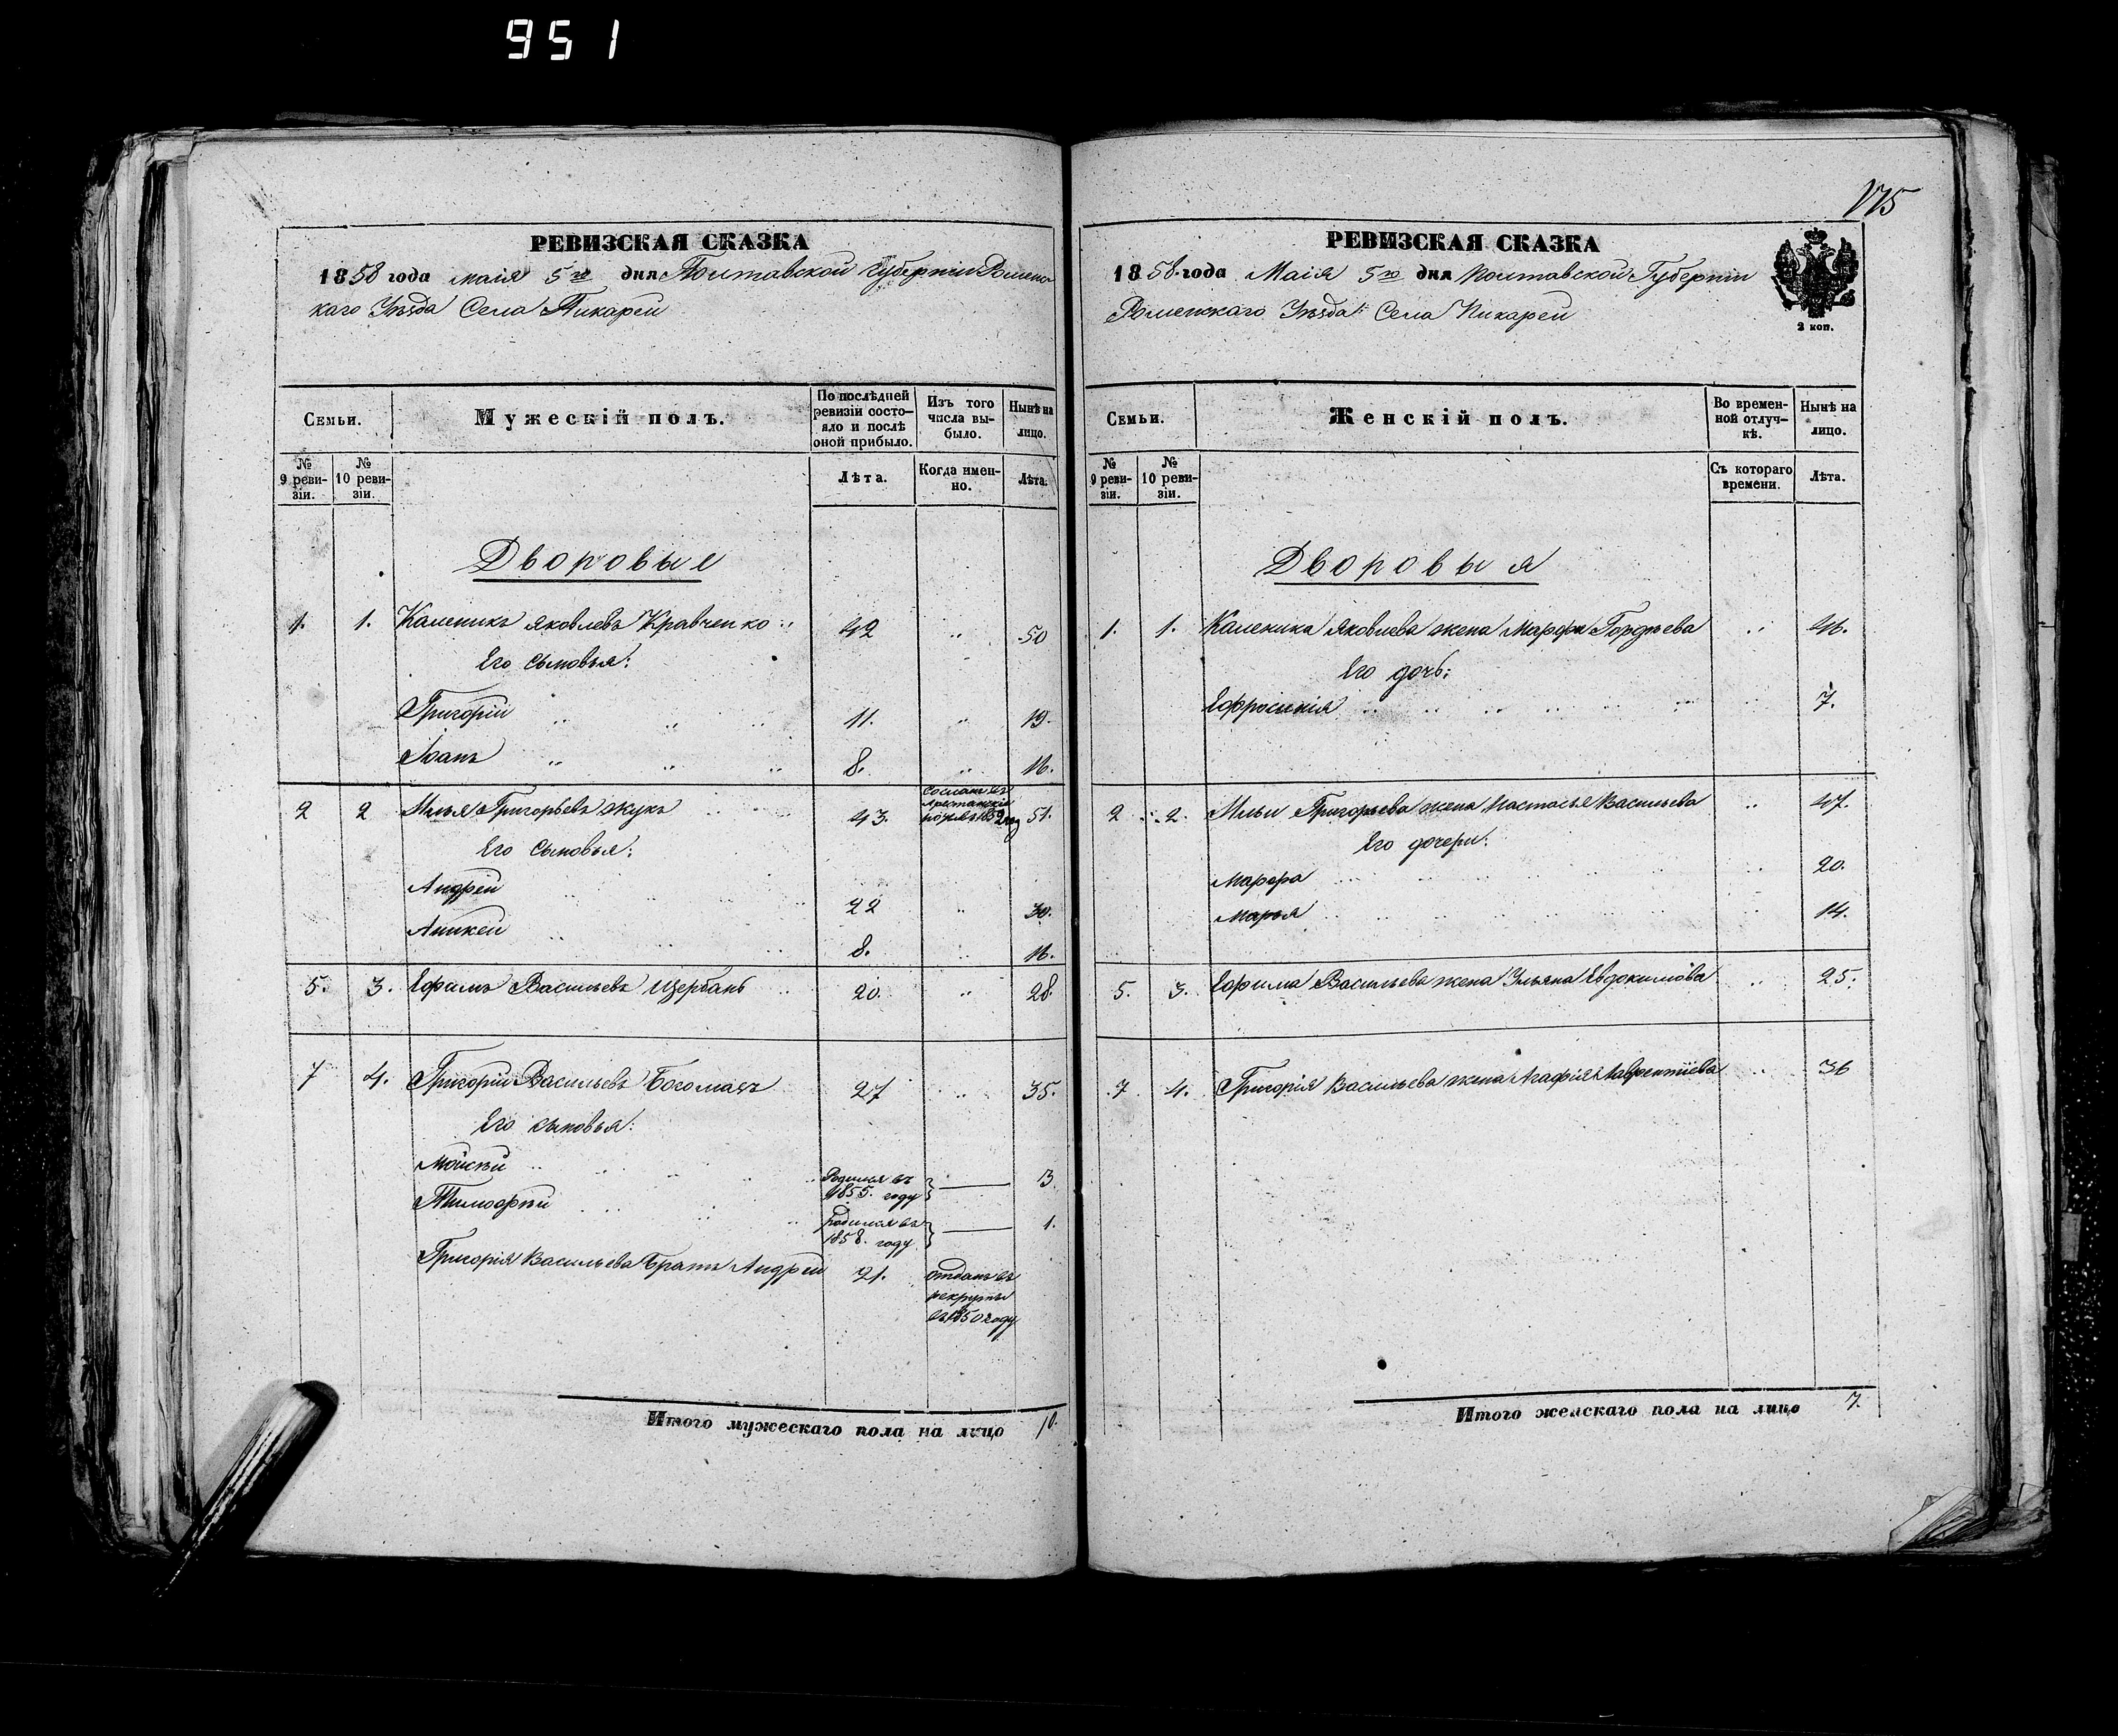 951
175
РЕВИЗСКАЯ СКАЗКА
1858 года маія 5го дня Полтавской Губерніи Роменс
каго Уѣзда Села Пикареи
Семьи.
Мужескій полъ.
По послѣдней ревизіи состояло и послѣ оной прибыло.
Изъ того числа выбыло.
Нынѣ на лицо.
№ 9 ревизіи.
№ 10 ревизіи.
Лѣта.
Когда именно.
Лѣта.
Дворовые
1. 1. Каленикъ Яковлевъ Кравченко 42 50
Его сыновья:
Григорій 11. 19.
Іоанъ 8. 16.
2 2 Илья Григорьевъ Жукъ 43. сосланъ въ арестанскія 1852 год 51.
Его сыновья:
Андрей 22 30.
Аникей 8. 16.
5. 3. Ефимъ Васильевъ Щербань 20. 28.
7 4. Григорій Васильевъ Богомазъ 27 35.
Его сыновья:
Мойсей Родился въ 1855. году 3.
Тимофѣй родился въ 1858. году 1.
Григорія Васильева Братъ Андрей 21. отданъ въ рекруты въ 1850 году
Итого мужескаго пола на лицо 10.
РЕВИЗСКАЯ СКАЗКА
1858 года Маія 5го дня Полтавской Губерніи
Роменскаго Уѣзда Села Пикареи
2 коп.
Семьи.
Женскій полъ.
Во временной отлучкѣ.
Нынѣ на лицо.
№ 9 ревизіи.
№ 10 ревизіи.
Съ котораго времени.
Лѣта.
Дворовыя
1. 1. Каленика Яковлева жена Марфа Гордѣева 46.
Его дочь:
Ефросинія 7.
2 2. Ильи Григорьева жена Настасья Васильева 47.
Его дочери:
Марфа 20.
Марья 14.
5. 3. Ефима Васильева жена Ульяна Евдокимова 25.
7 4. Григорія Васильева жена Агафія Лаврентіева 36
Итого женскаго пола на лицо 7.